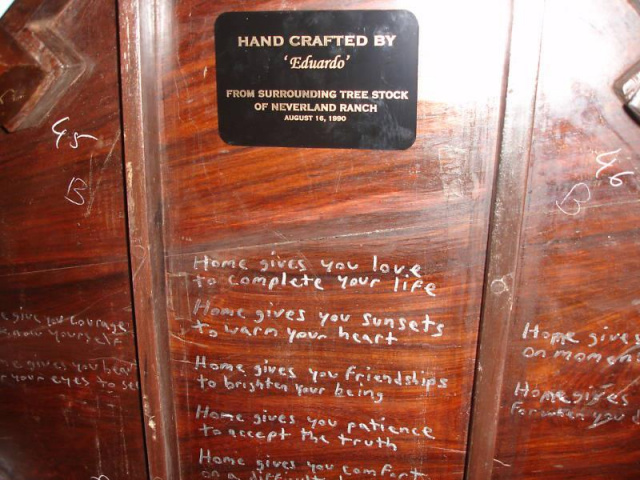 HAND CRAFTED BY
'Eduardo'
FROM SURROUNDING TREE STOCK
OF NEVERLAND RANCH
AUGUST 16, 1990
45
B
46
B
Home gives you love
to complete your life
Home gives you sunsets
to warm your heart
Home gives you friendships
to brighten your being
Home gives you patience
to accept the truth
Home gives you comfort
on a difficult
give you courage
know yourself
gives you
your eyes to see
Home gives
on
Home gives
for when you